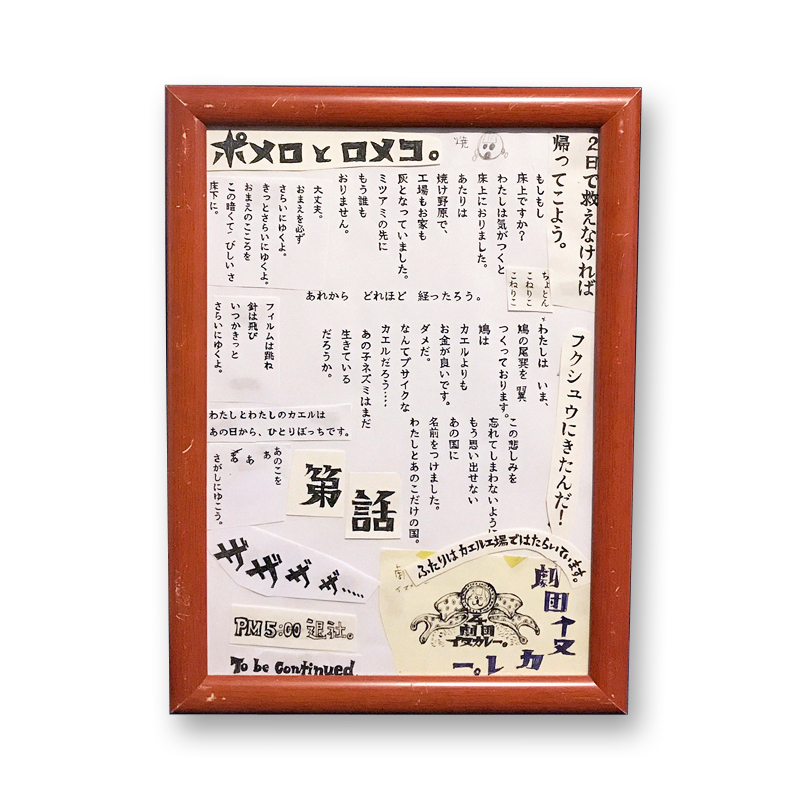 ポメロとロメコ。
焼
2日で救えなければ
帰ってこよう。
もしもし
床上ですか?
わたしは気がつくと
床上におりました。
あたりは
焼け野原で、
工場もお家も
灰となっていました。
ミツアミの先に
もう誰も
おりません。
大丈夫。
おまえを必ず
さらいにゆくよ。
きっとさらいにゆくよ。
おまえのこころを
この暗くてさびしいさ
床下に。
ちょとん
こねりこ
こねりこ
あれから どれほど 経ったろう。
フクシュウにきたんだ!
わたしは いま、
鳩の尾巽を 翼
つくっております。
鳩は
カエルよりも
お金が良いです。
ダメだ。
なんてブサイクな
カエルだろう……
あの子ネズミはまだ
生きている
だろうか。
フィルムは跳ね
針は飛び
いつかきっと
さらいにゆくよ。
この悲しみを
忘れてしまわないように
もう思い出せない
あの国に
名前をつけました。
わたしとあのこだけの国。
わたしとわたしのカエルは
あの日から、ひとりぼっちです。
あのこを
ああぁ
さがしにゆこう。
第
話
ふたりはカエル工場ではたらいています。
ザザザザ……
劇団イヌカレー。
劇団
イヌカレー。
PM5:00 退社。
To be Continued